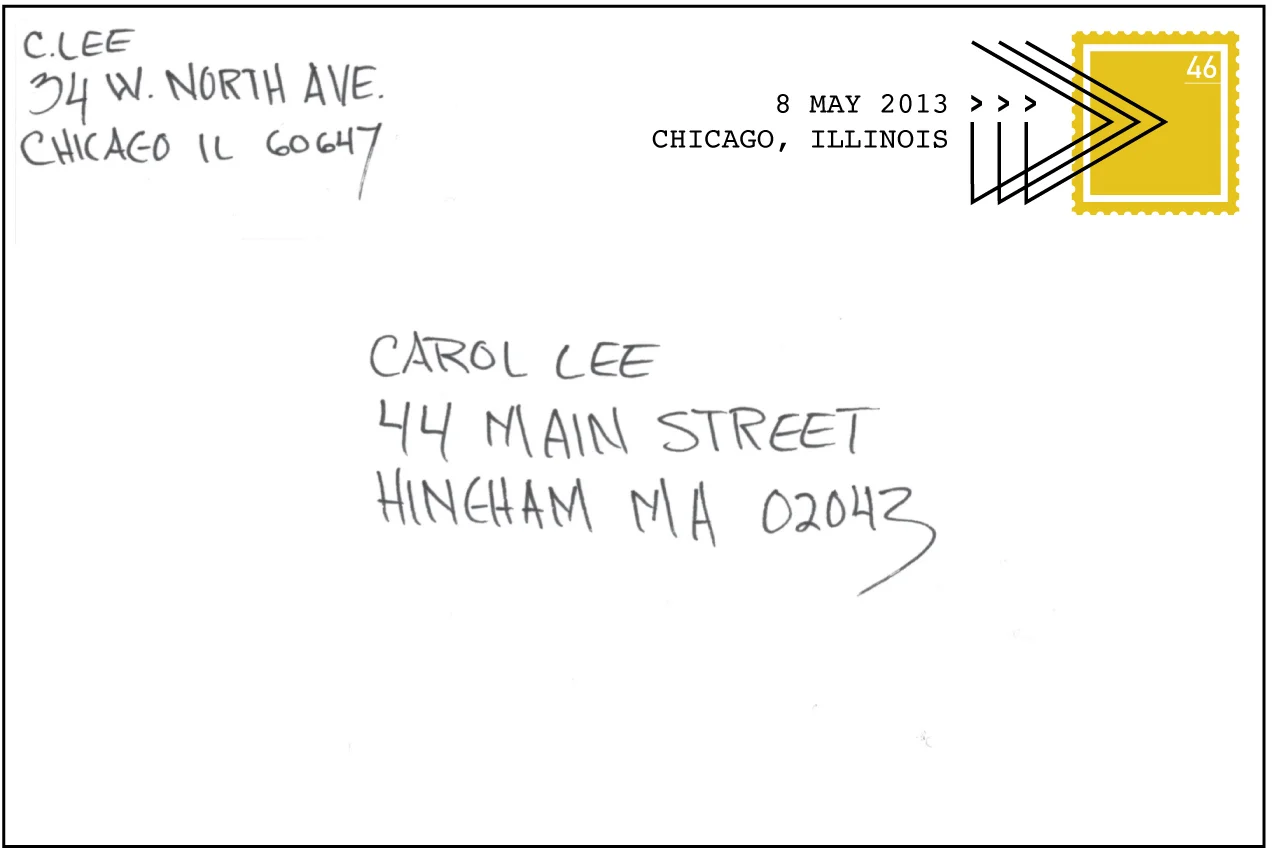 C. LEE
34 W. NORTH AVE.
CHICAGO IL 60647
46
8 MAY 2013 >>>
CHICAGO, ILLINOIS
CAROL LEE
44 MAIN STREET
HINGHAM MA 02043